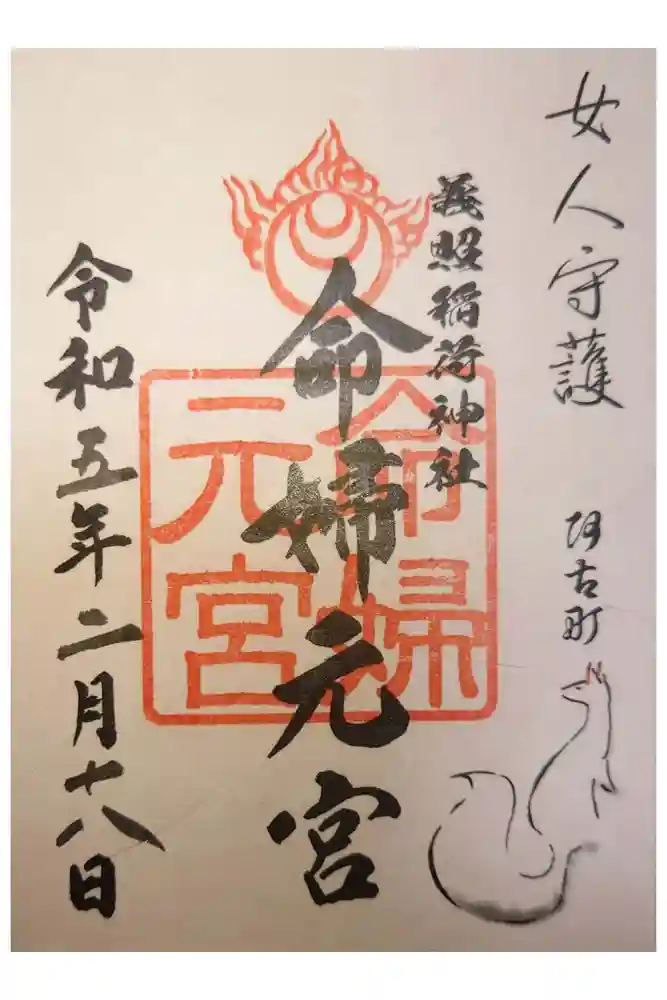 女人守護
阿古町
義照稲荷神社
命婦元宮
命婦
元宮
令和五年二月十八日